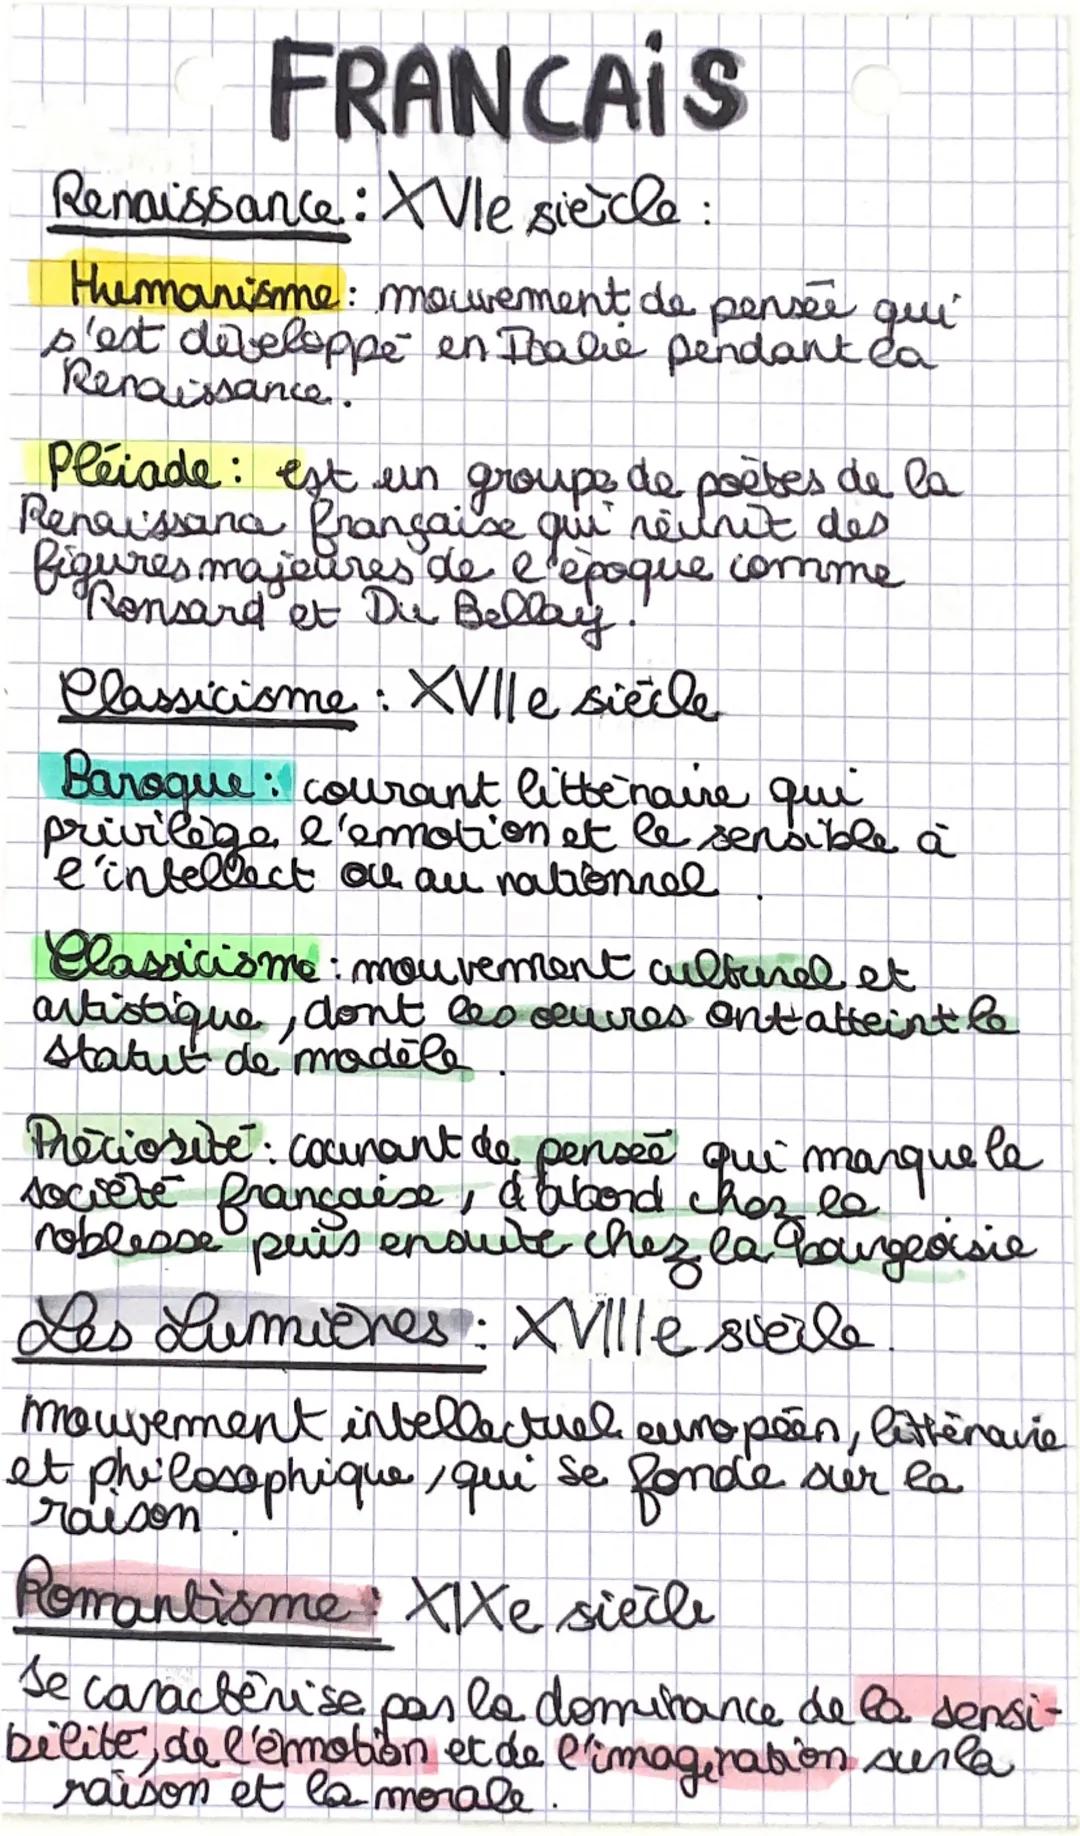 FRANCAIS
Renaissance : XVIe siècle :
Humanisme : mouvement de pensée qui
s'est développé en Italie pendant la
Renaissance.
Pléiade : est un groupe de poètes de la
Renaissance française qui réunit des
figures majeures de l'époque comme
Ronsard et Du Bellay.
Classicisme : XVIIe siècle
Baroque : courant littéraire qui
privilège l'émotion et le sensible à
l'intellect ou au rationnel.
Classicisme : mouvement culturel et
artistique, dont les œuvres ont atteint le
statut de modèle.
Préciosité : courant de pensée qui marque la
société française, d'abord chez la
noblesse puis ensuite chez la bourgeoisie
Les Lumières : XVIIIe siècle.
mouvement intellectuel européen, littéraire
et philosophique, qui se fonde sur la
raison.
Romantisme : XIXe siècle
se caractérise par la dominance de la sensi-
bilité, de l'émotion et de l'imagination sur la
raison et la morale.